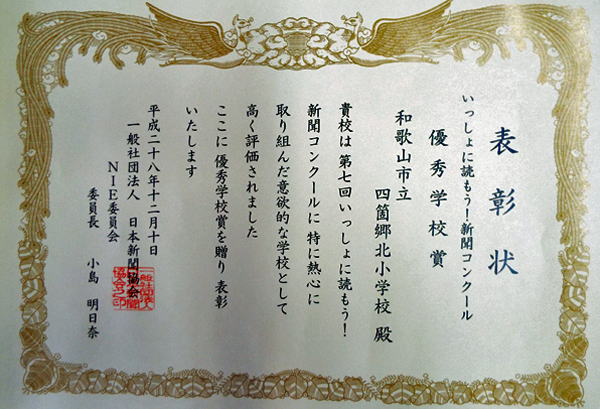 表彰状
いっしょに読もう!新聞コンクール
優秀学校賞
和歌山市立
四箇郷北小学校 殿
貴校は 第七回いっしょに読もう!
新聞コンクールに 特に熱心に
取り組んだ意欲的な学校として
高く評価されました
ここに 優秀学校賞を贈り 表彰
いたします
平成二十八年十二月十日
一般社団法人 日本新聞協会
NIE委員会
委員長 小島 明日奈
一般社団法人
日本新聞
協会之印